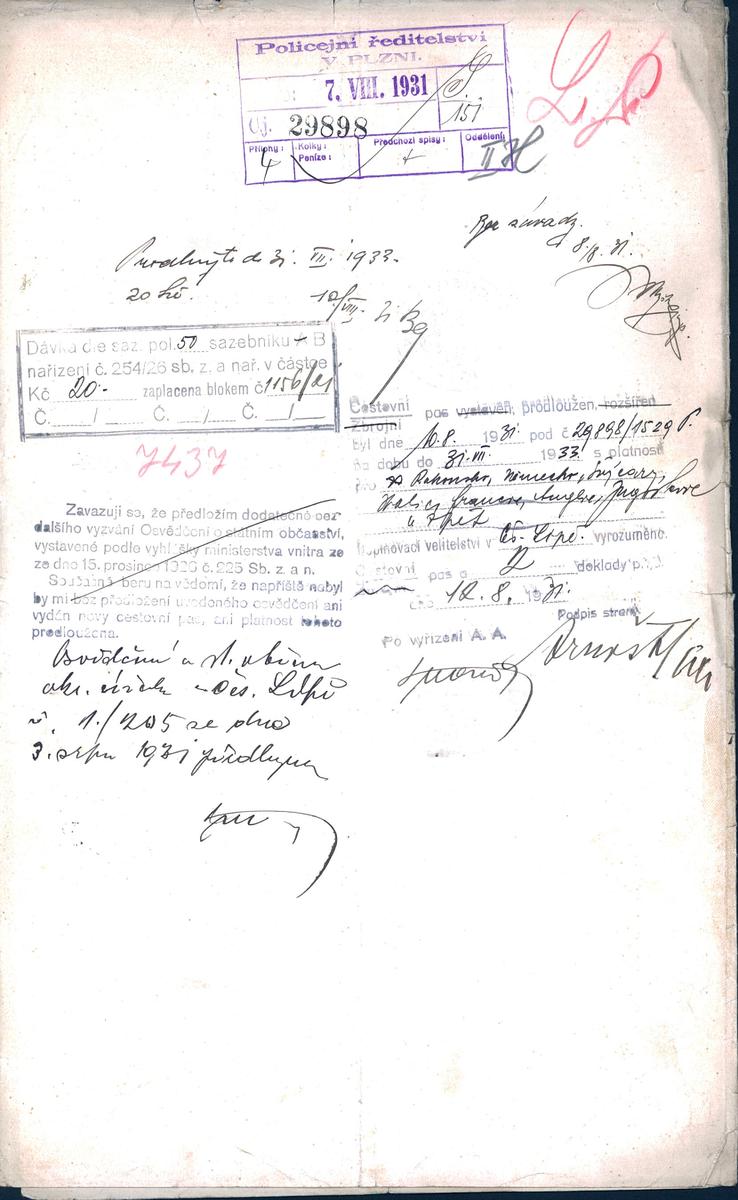 Policejní ředitelství
V PLZNI.
7. VIII. 1931
Čj. 29898 151
Přílohy: Kolky: Peníze: Předchozí spisy: Oddělení:
4 + II H
Bez závady.
8./8. 31.
Prodlužte do 31. VII. 1933.
20 Kč. 10/VIII. 31
Dávka dle saz. pol. 50 sazebníku A B
nařízení č. 254/26 sb. z. a nař. v částce
Kč 20.- zaplacena blokem č. 1156/21
Č. / Č. / Č. /
7437
Cestovní pas vystaven, prodloužen, rozšířen
Zbrojní
byl dne 10.8. 1931 pod č 29898/1529 P.
na dobu do 31. VII. 1933 s platností
pro Rakousko, Německo, Švýcary,
Italii, Francii, Anglii, Jugoslavii
a zpět
Doplňovací velitelství v Čs. Lípě. vyrozuměno.
Cestovní pas a 2 doklady p.j.
dne 12. 8. 1931.
Podpis strany
Po vyřízení A. A.
Zavazuji se, že předložím dodatečně bez
dalšího vyzvání Osvědčení o státním občanství,
vystavené podle vyhlášky ministerstva vnitra ze
ze dne 15. prosince 1926 č. 225 Sb. z. a n.
Současně beru na vědomí, že napříště nebyl
by mi bez předložení uvedeného osvědčení ani
vydán nový cestovní pas, ani platnost tohoto
predloužena.
Osvědčení o st. občan.
okr. úřadu v Čes. Lípě
č. 1./205 ze dne
3. srpna 1931 předloženo